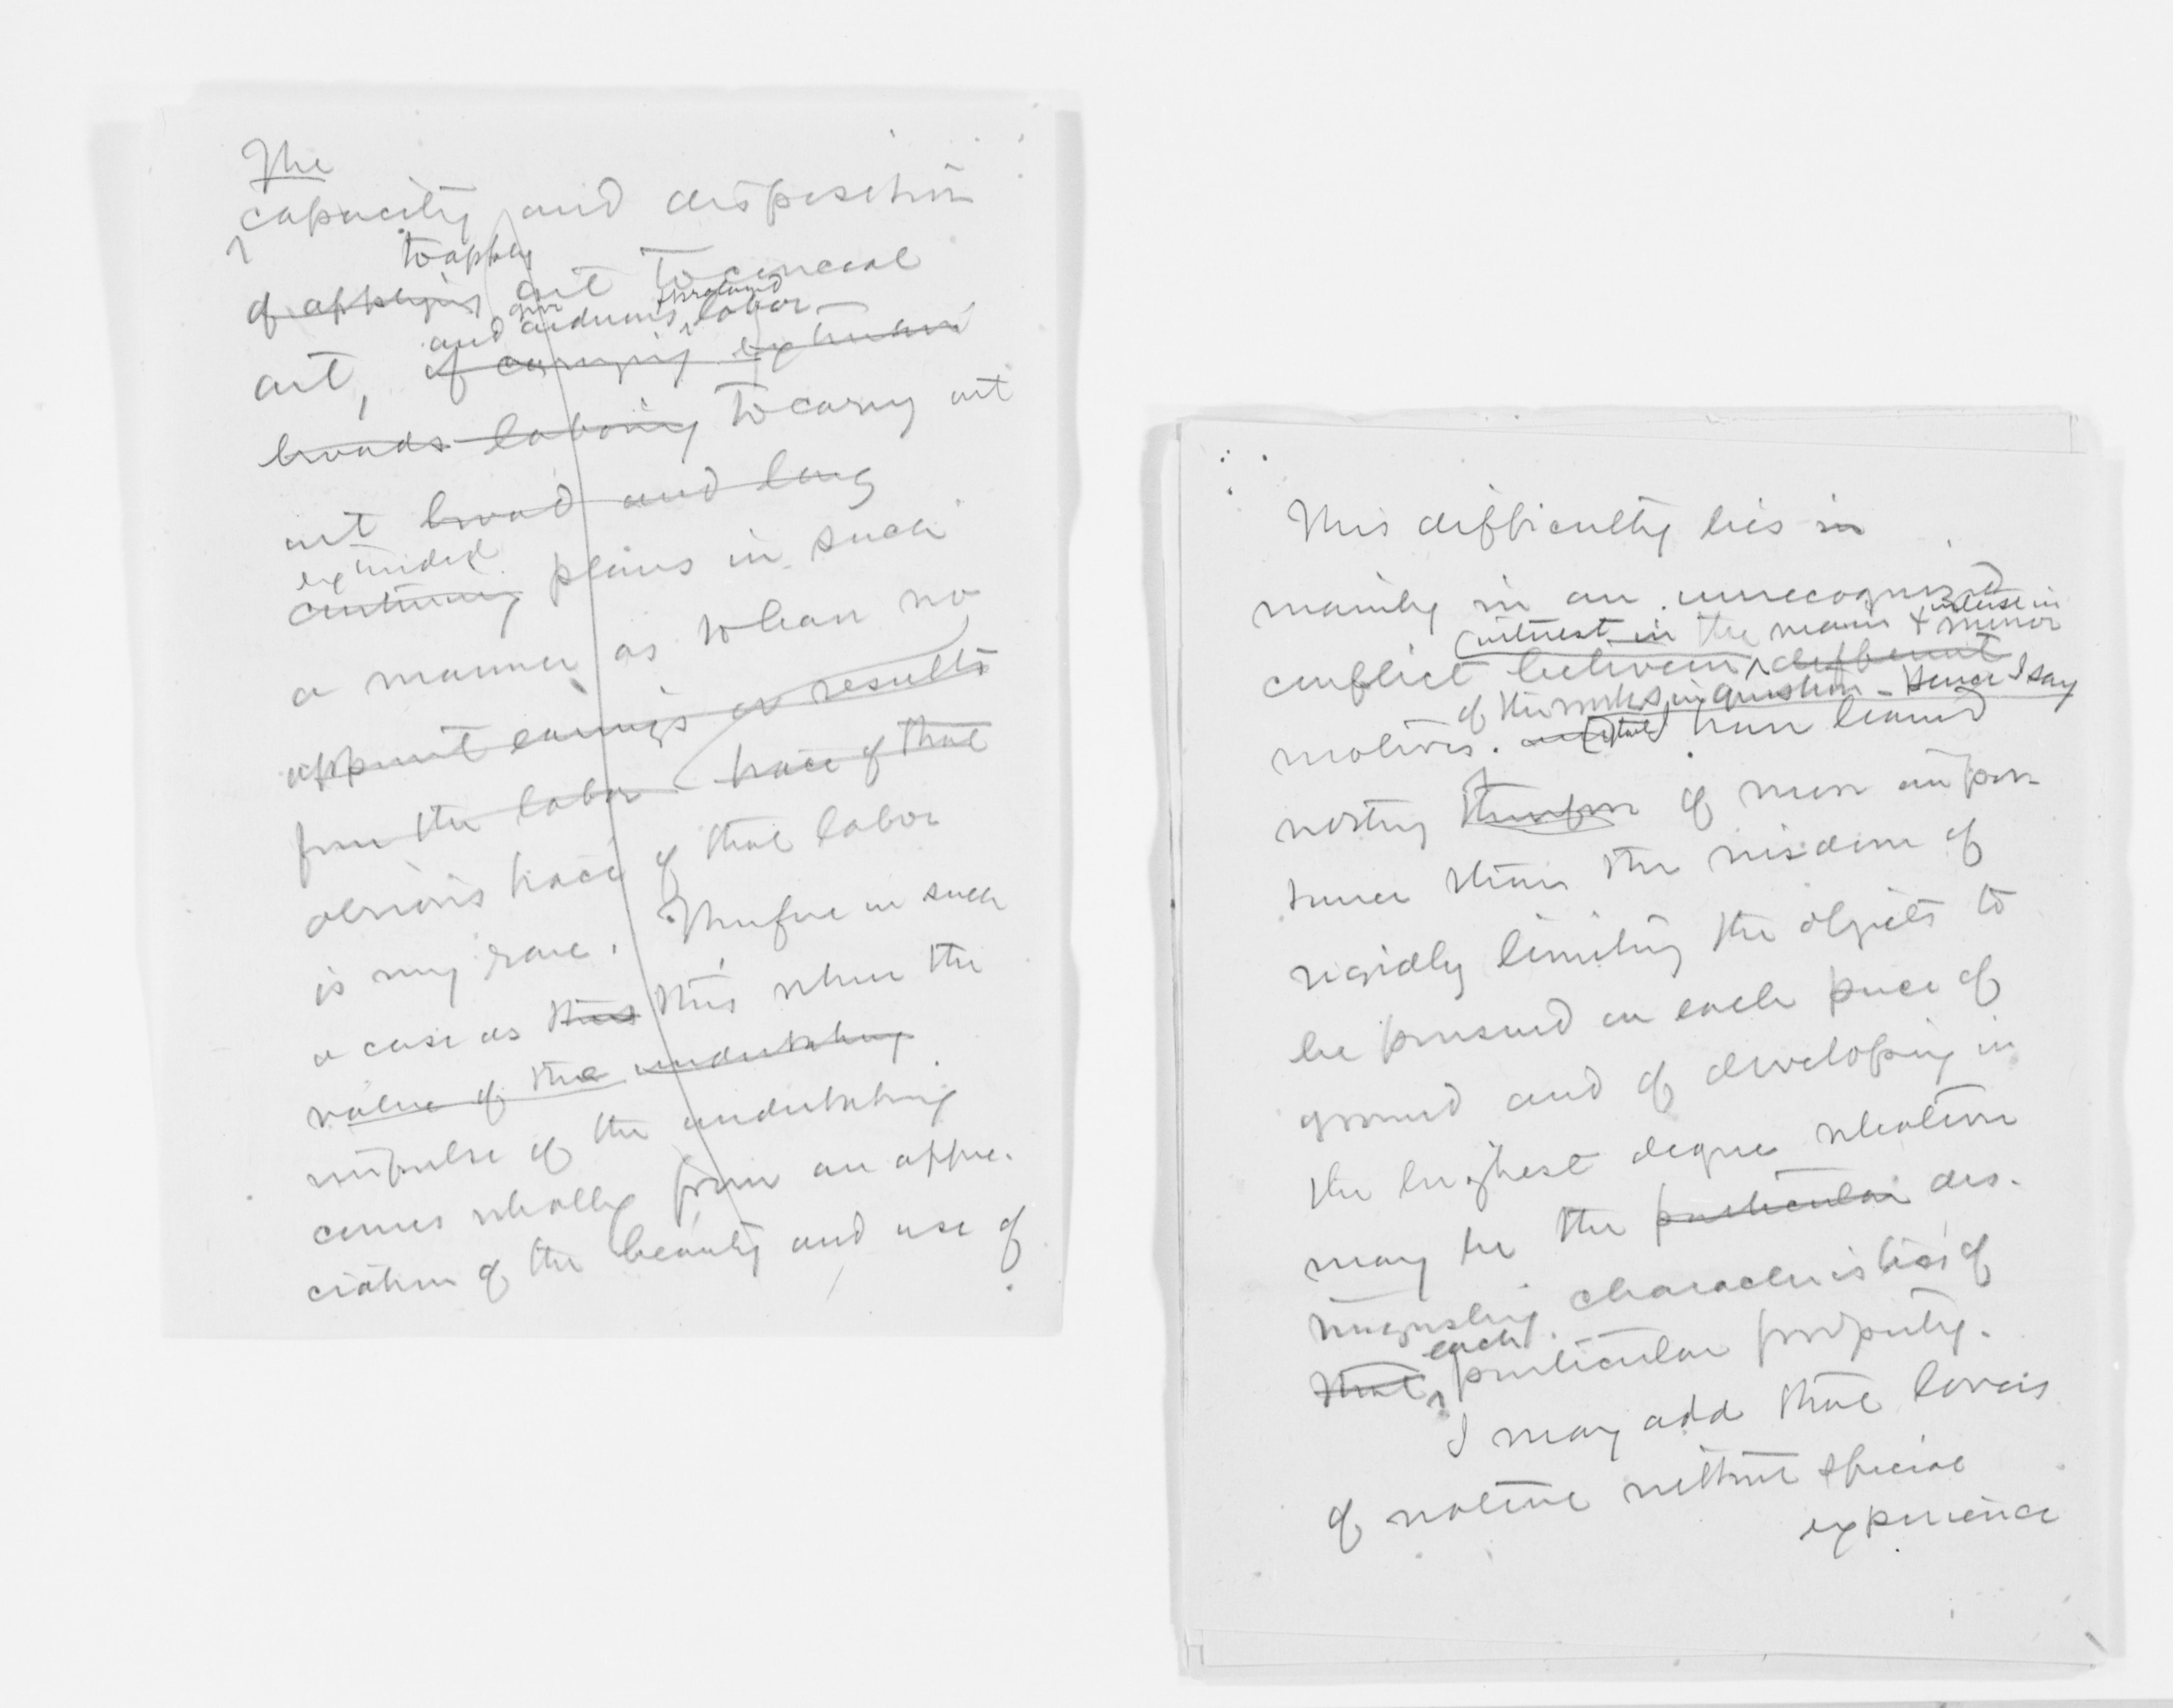 The
capacity and disposition
to apply
of applying art to conceal
and arduous profound labor
art, of carrying
broads laboring to carry out
out broad and long
extended
continuing plans in such
a manner as to bear no
apparent earnings or results
from the labor trace of that
obvious trace of that labor
is very rare. Therefore in such
a case as this this when the
value of the undertaking
impulse of the undertaking
comes wholly from an appre-
ciation of the beauty and use of
This difficulty lies in
mainly in an unrecognized
interest in the main & minor
conflict between different
of the works in question - Hence I say
motives. that have learned
nothing therefore of more impor-
tance than the wisdom of
rigidly limiting the objects to
be pursued on each piece of
ground and of developing in
the highest degree whatever
may be the particular dis-
tinguishing characteristics of
each
that particular property.
I may add that lovers
of nature without special
experience